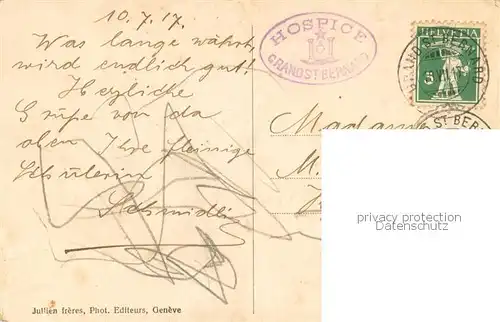 10.7.17.
Was lange währt,
wird endlich gut!
Herzliche
Grüße von da
oben Ihre fleissige
Schülerin
Schmidli
HOSPICE
GRAND ST BERNARD
HELVETIA
5
GRAND ST BERNARD
ST BERN
Madame
M.
privacy protection
www.oldthing.de
Jullien frères, Phot. Editeurs, Genève